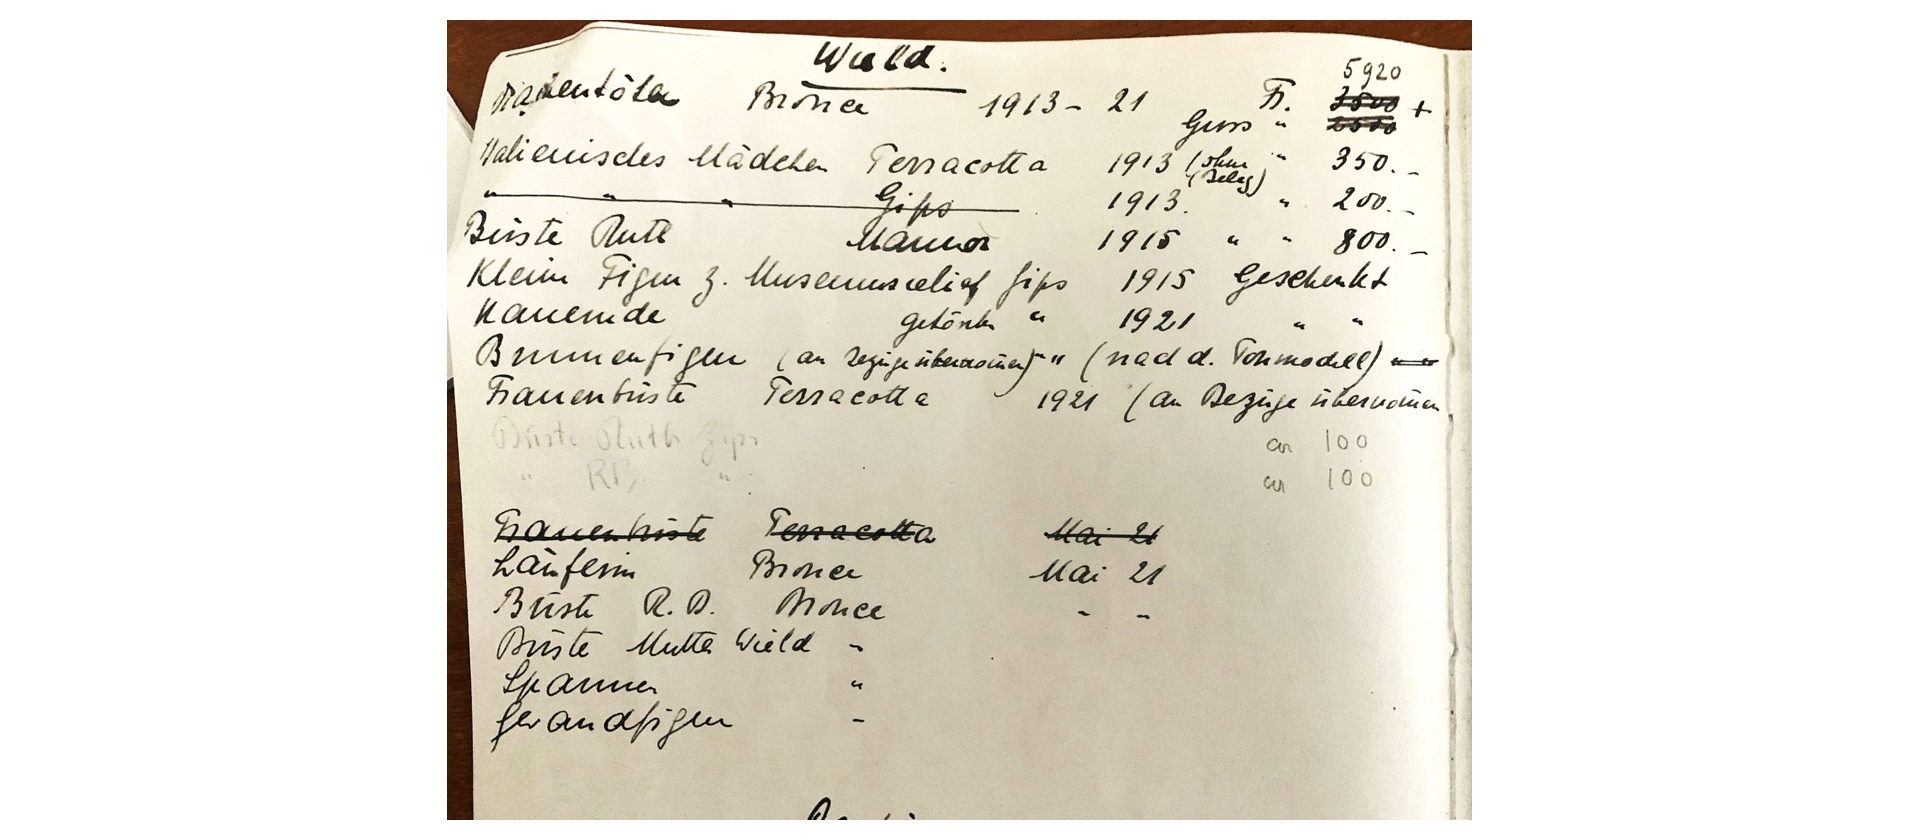 Wield.
5920
Drachentöter Bronce 1913-21 Fr. 3500 +
Guss " 2500
Italienisches Mädchen Terracotta 1913 (ohne " 350.-
(Beleg)
" " " Gips 1913. " 200.-
Büste Ruth Marmor 1915 " " 800.-
Kleine Figur z. Museumsrelief Gips 1915 Geschenkt
Kauernde getönter " 1921 " "
Brunnenfigur (an Bezüge übernomen) " (nach d. Tonmodell)
Frauenbüste Terracotta 1921 (an Bezüge übernomen
Büste Ruth Gips ca 100
" RB. " ca 100
Frauenbüste Terracotta Mai 21
Läuferin Bronce Mai 21
Büste R. B. Bronce " "
Büste Mutter Wield "
Spanner "
Gewandfigur "